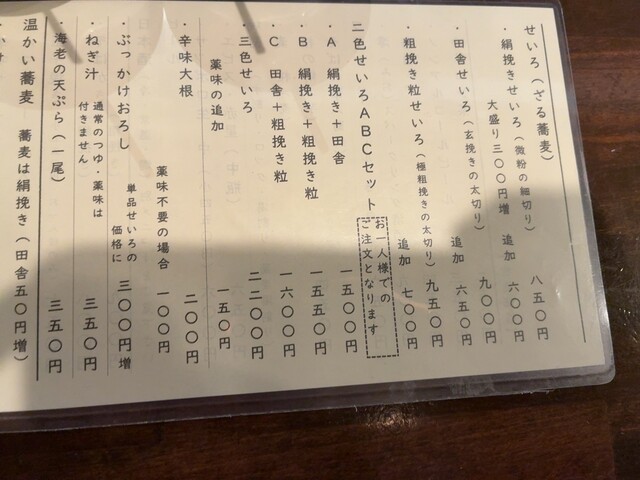 せいろ（ざる蕎麦）
・絹挽きせいろ（微粉の細切り） 八五〇円
大盛り三〇〇円増 追加 六〇〇円
・田舎せいろ（玄挽きの太切り） 九〇〇円
追加 六五〇円
・粗挽き粒せいろ（極粗挽きの太切り） 九五〇円
追加 七〇〇円
二色せいろＡＢＣセット
お一人様での
ご注文となります
・Ａ 絹挽き＋田舎 一五〇〇円
・Ｂ 絹挽き＋粗挽き粒 一五五〇円
・Ｃ 田舎＋粗挽き粒 一六〇〇円
・三色せいろ 二二〇〇円
薬味の追加 一五〇円
・辛味大根 二〇〇円
薬味不要の場合 一〇〇円
・ぶっかけおろし 単品せいろの
価格に 三〇〇円増
・ねぎ汁 通常のつゆ・薬味は
付きません） 三五〇円
・海老の天ぷら（一尾） 三五〇円
温かい蕎麦 蕎麦は絹挽き（田舎五〇円増）